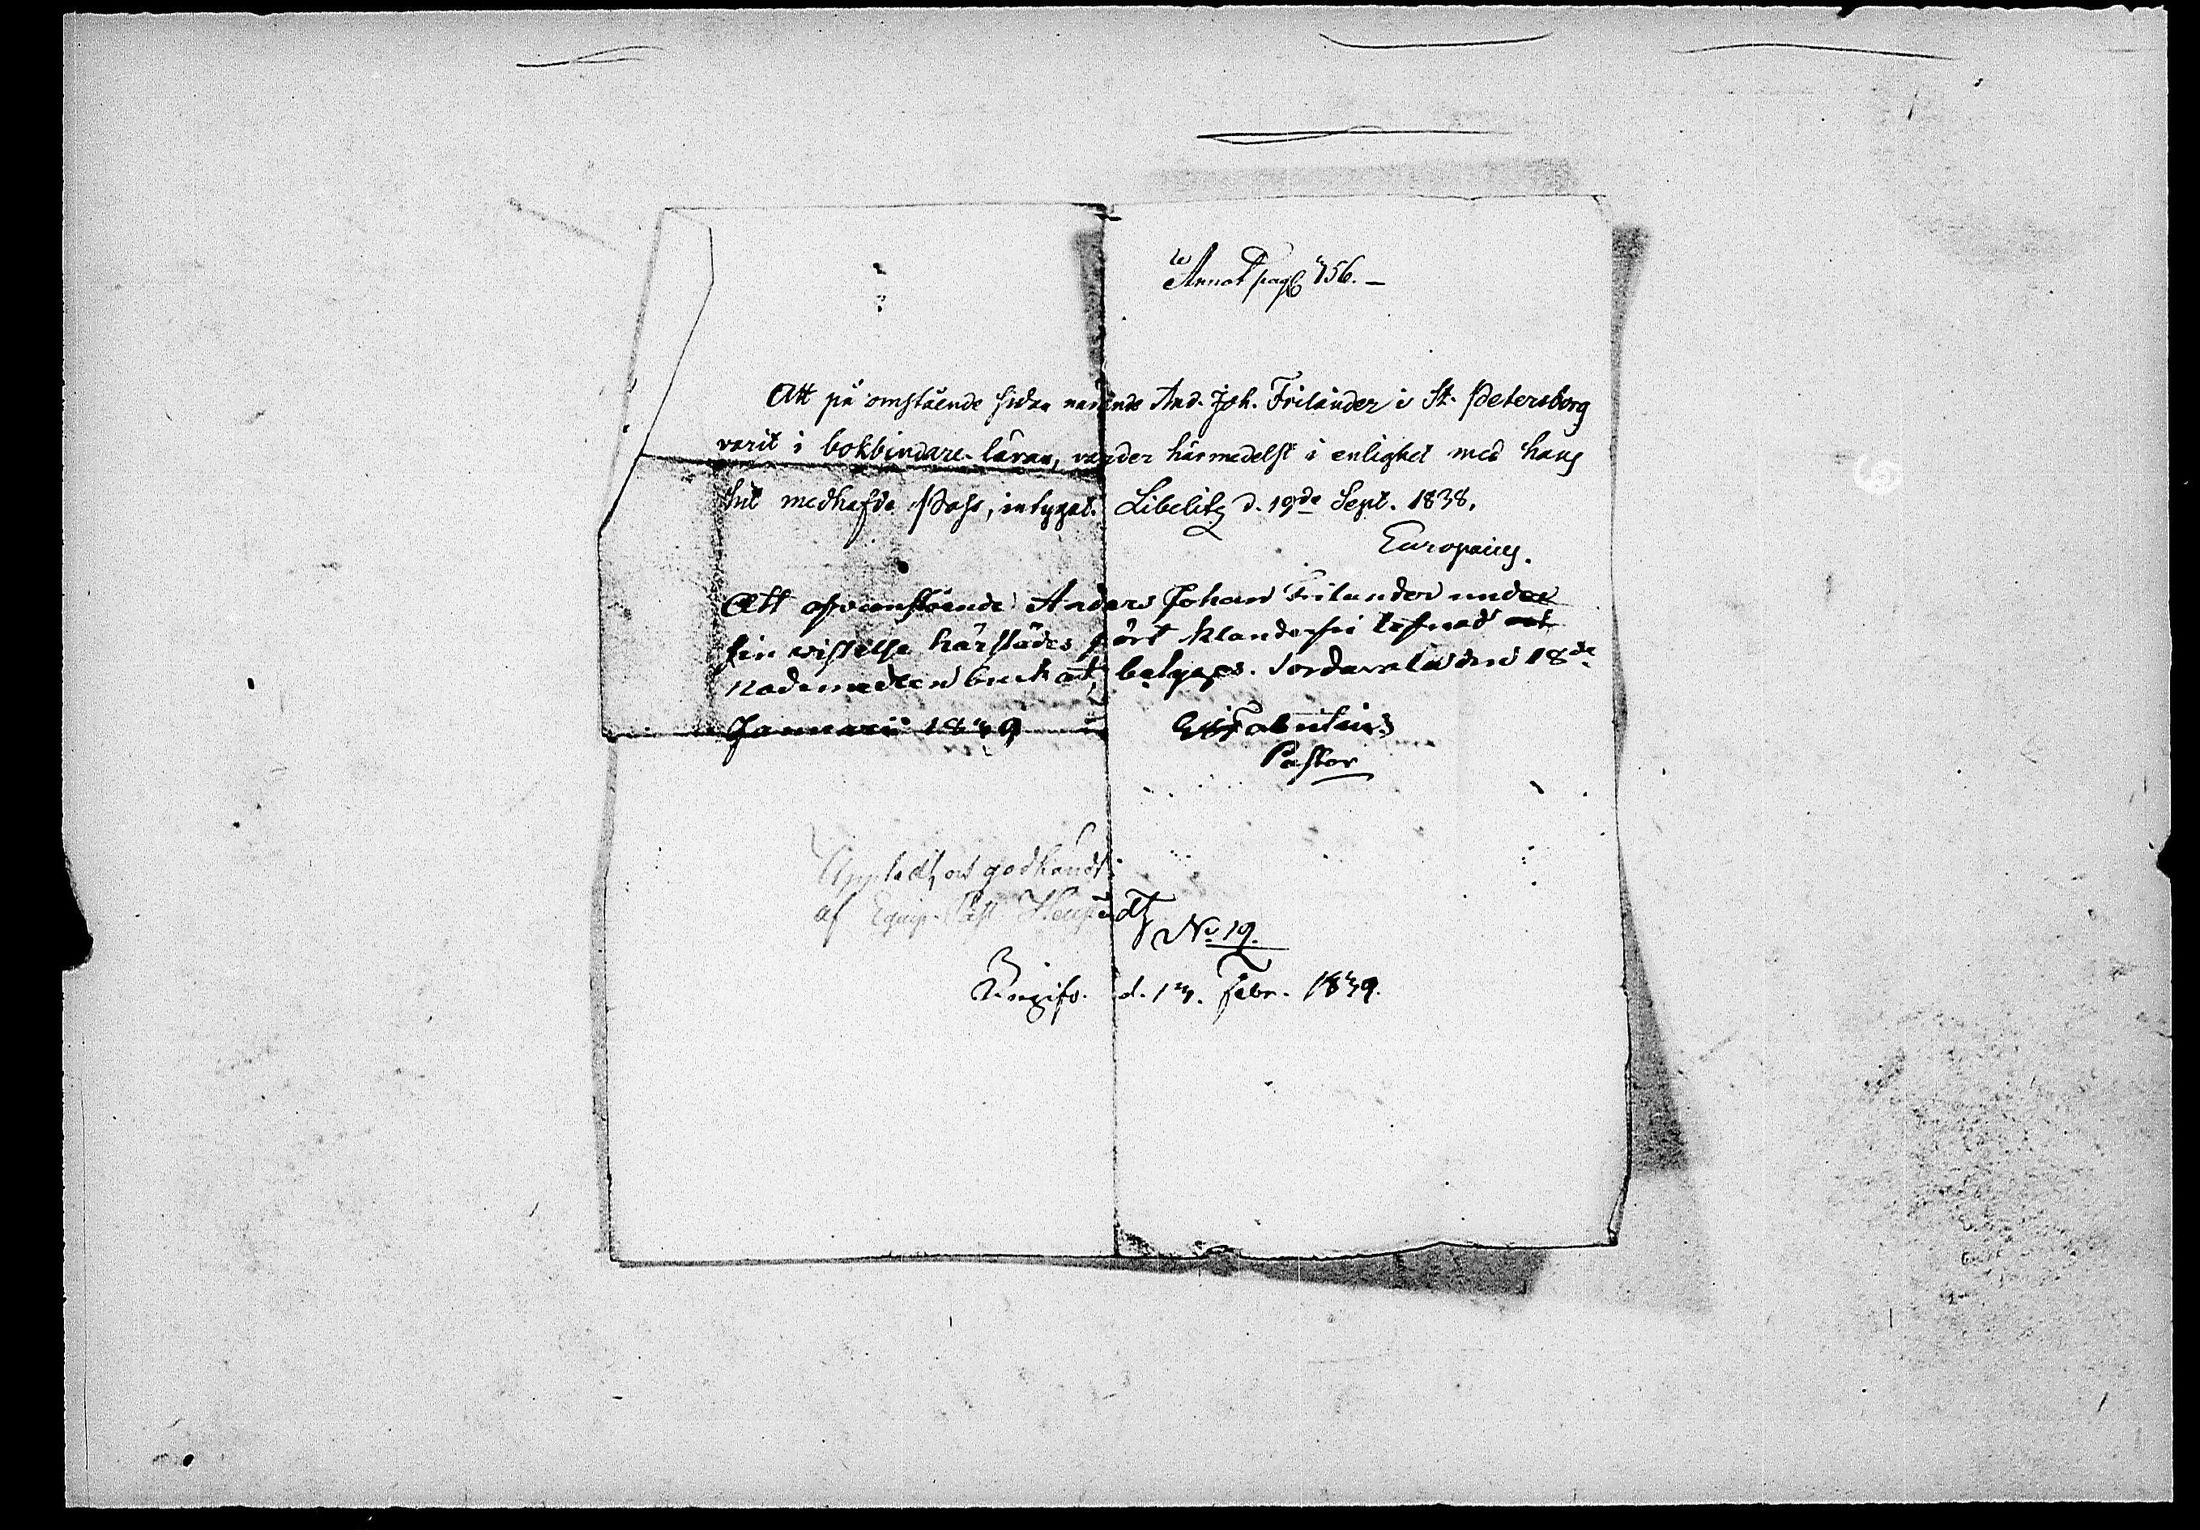 Annot pag 756. —
Att på omstående sidan nämnde And. Joh. Frilander i St. Petersborg
varit i bokbindare-läran, varder härmedelst i enlighet med hans
hit medhafde Pass, intygat. Libelitz d. 19de Sept. 1838.
Europæus.
Att ofvanstående Anders Johan Frilander under
sin wistelse härstädes fört klanderfri lefnad och
Nademedlen brukat, betygas. Sordavala den 18de
Januarii 1839
Pastor
Uppledt och godkändt
af
No 19.
d. 13. Febr. 1839.